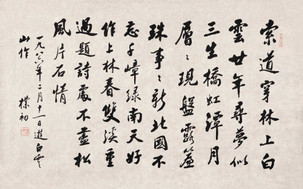 索道穿林上白
雲廿年尋夢似
三生橋虹譚月
層層現盤露簷
珠事事新北國不
忘子嶂綠南天好
作上林春雙溪重
過題詩處不盡松
風片石情
一九八六年二月十一日遊白雲
山作 樸初